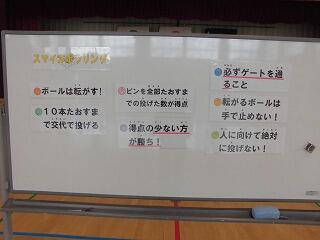 スマイルボッリング
ボールは転がす！
１０本たおすま
で交代で投げる
ピンを全部たおすま
での投げた数が得点
得点の少ない方
が勝ち！
必ずゲートを通
ること
転がるボールは
手で止めない！
人に向けて絶対
に投げない！